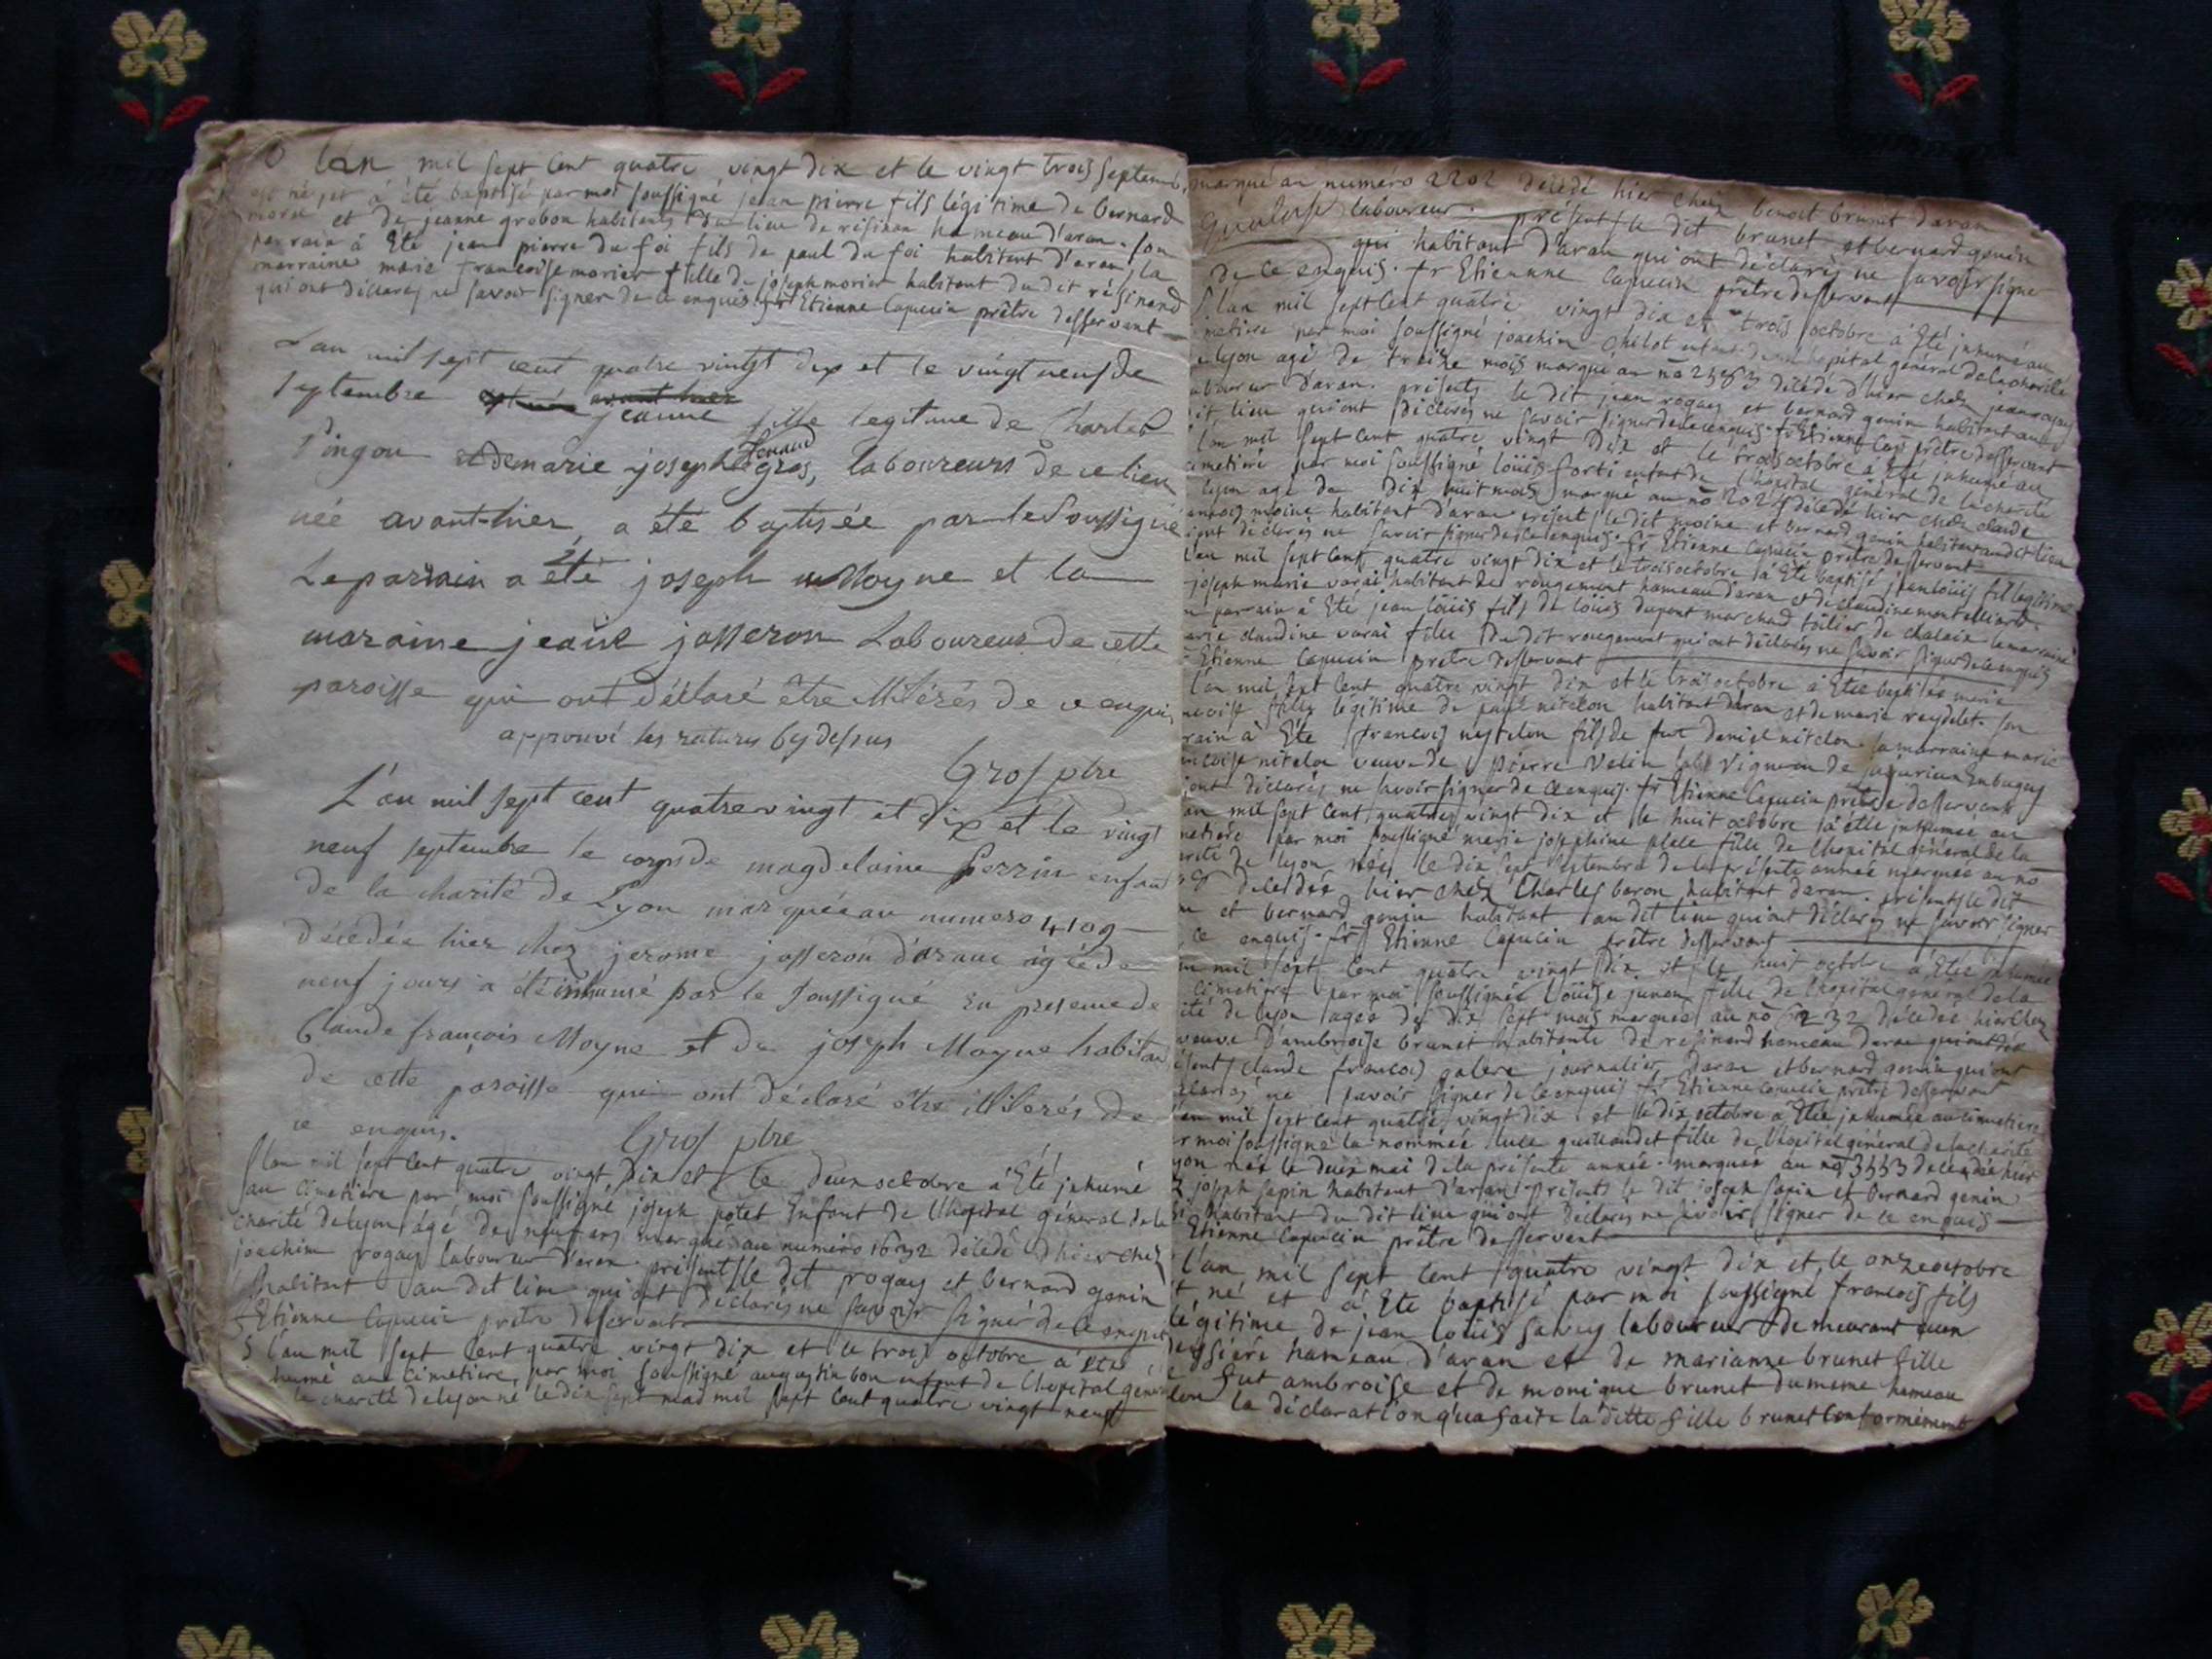 L'an mil sept cent quatre vingt dix et le vingt trois septemb
est né et à été baptisé par moi soussigné jean pierre fils légitime de bernard
morie et de jeanne grobon habitents du lieu de résinan hameau d'aran. son
parrain à Eté jean pierre du foi fils de paul du foi habitent d'aran, la
marraine marie francoise morier fille de joseph morier habitent du dit résinend
qui ont déclarés ne savoir signer de ce enquis. fr Etienne Capucin prêtre desservent
L'an mil sept cent quatre vingt dix et le vingt neuf de
septembre jeanne fille legitime de Charles
Pingon et de marie joseph gros, laboureurs de ce lieu
née avant-hier, a été baptisée par le soussigné
Le parrain a été joseph Moyne et la
maraine jeanne josseron Laboureur de cette
paroisse qui ont déclaré être illitérés de ce enquis
approuvé les ratures cy dessus
Gros ptre
L'an mil sept cent quatre vingt et dix et le vingt
neuf septembre le corps de magdelaine Perrin enfant
de la charité de Lyon marquée au numero 4109
décédée hier chez jerome josseron d'aranc agée de
neuf jours a été inhumé par le soussigné en presence de
Claude françois Moyne et de joseph Moyne habitan
de cette paroisse qui ont déclaré être illiterés de
ce enquis. Gros ptre
l'an mil sept cent quatre vingt dix et le deux octobre à Eté inhumé
au cimetiere par moi soussigné joseph potet Enfant de l'hopital général de la
charité de lyon âgé de neuf ans marqué au numéro décédé d'hier chez
joachim rogay laboureur d'aran. présents le dit rogay et bernard genin
habitant au dit lieu qui ont déclarés ne savoir signer de ce enquis
Etienne Capucin prêtre desservent
l'an mil sept cent quatre vingt dix et le trois octobre à été
humé au cimetiere, par moi soussigné augustin bon enfant de l'hopital génér
la charité de lyon né le dix sept mil sept cent quatre vingt neuf
marqué au numéro 2202 décédé hier chez benoit brunet d'aran
laboureur. présent le dit brunet et bernard genin
qui habitant d'aran qui ont déclarés ne savoir signe
de ce enquis. fr Etienne Capucin prêtre desservent
l'an mil sept cent quatre vingt dix et trois octobre à Eté inhumé au
metiere par moi soussigné joachim chelot enfant de l'hopital général de la charité
lyon agé de treize mois marqué au no décédé d'hier chez jean rogay
laboureur d'aran. présents le dit jean rogay et bernard genin habitant au
dit lieu qui ont déclarés ne savoir signer de ce enquis. fr Etienne Cap prêtre desservent
l'an mil sept cent quatre vingt dix et le trois octobre à Eté inhumé au
cimetiere par moi soussigné loüis forti enfant de l'hopital général de la charité
lyon agé de dix huit mois marqué au no décédé hier chez claude
moine habitant d'aran présents le dit moine et bernard genin habitant au dit lieu
ont déclarés ne savoir signer de ce enquis. fr Etienne Capucin prêtre desservent
l'an mil sept cent quatre vingt dix et le trois octobre à Eté baptisé jean loüis fil legitime
joseph marie varai habitent de rougemont hameau d'aran et de claudine
parrain à Eté jean loüis fils de loüis dupont marchand toilier de la marraine
marie claudine varai fille du dit rougemont qui ont déclarés ne savoir signer de ce enquis
Etienne Capucin prêtre desservent
l'an mil sept cent quatre vingt dix et le trois octobre à Etée baptisée marie
fille légitime de paul nitelon habitant d'aran et de marie reydelet. son
rain à Eté francois nytelon fils de feu deniel nitelon. la marraine marie
ncoise nitelon veuve de pierre velin vigneron de
ont déclarés ne savoir signer de ce enquis. fr Etienne Capucin prêtre desservent
an mil sept cent quatre vingt dix et le huit octobre à étée inhumée au
metiere par moi soussigné marie josephine fille de l'hopital général de la
arité de lyon née le dix sept septembre de la présente année marquée au no
decédée hier chez Charles baron habitant d'aran. présents le dit
et bernard genin habitant au dit lieu qui ont déclarés ne savoir signer
ce enquis. fr Etienne Capucin prêtre desservent
mil sept cent quatre vingt dix et le huit octobre a Etée inhumée
cimetiere par moi soussigné loüise fille de l'hopital général de la
ité de lyon agée de dix sept mois marquée au no décédée hier chez
veuve d'ambroise brunet habitante de résinend hameau d'aran
ésent claude francois galere journalier d'aran et bernard genin qui ont
clarés ne savoir signer de ce enquis fr Etienne Capucin prêtre desservent
l'an mil sept cent quatre vingt dix et le dix octobre à Etée inhumée au cimetiere
r moi soussigné la nommée fille de l'hopital général de la charité
yon née le deux mai de la présente année. marquée au no decédée hier
joseph sapin habitant d'aran. présents le dit joseph sapin et bernard genin
habitant du dit lieu qui ont déclarés ne savoir signer de ce enquis
Etienne Capucin prêtre desservent
l'an mil sept cent quatre vingt dix et le onze octobre
né et à Eté baptisé par moi soussigné francois fils
légitime de jean loüis savey laboureur demeurant
hameau d'aran et de marianne brunet fille
fut ambroise et de monique brunet du meme hameau
la déclaration qu'a faite la ditte fille brunet conformément